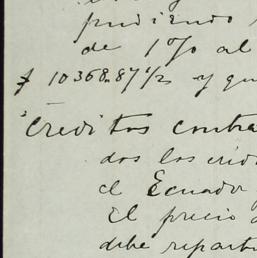 pudiendo
de 1% al
$ 10368.87 1/2 y qu
Creditos contra
dos los crid
el Ecuador
El precio
debe repartir